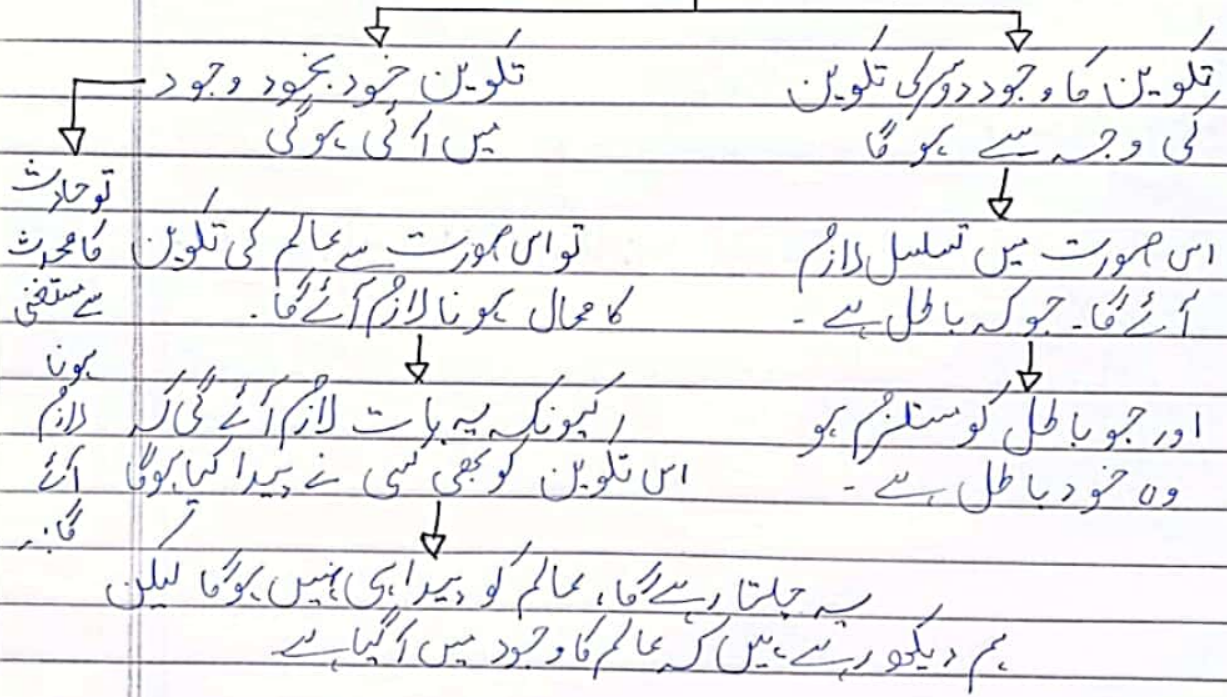 تکوین کا وجود دوسری تکوین
کی وجہ سے ہو گا
اس صورت میں تسلسل لازم
آئے گا۔ جو کہ باطل ہے۔
اور جو باطل کو مستلزم ہو
وہ خود باطل ہے۔
تکوین خود بخود وجود
میں آئی ہوگی
تو اس صورت سے عالم کی تکوین
کا محال ہونا لازم آئے گا۔
کیونکہ یہ بات لازم آئے گی کہ
اس تکوین کو بھی کسی نے پیدا کیا ہوگا
یہ چلتا رہے گا، عالم کو پیدا ہی نہیں ہوگا لیکن
ہم دیکھ رہے ہیں کہ عالم کا وجود میں آ گیا ہے
تو حادث
کا محدث
سے مستغنی
ہونا
لازم
آئے
گا۔